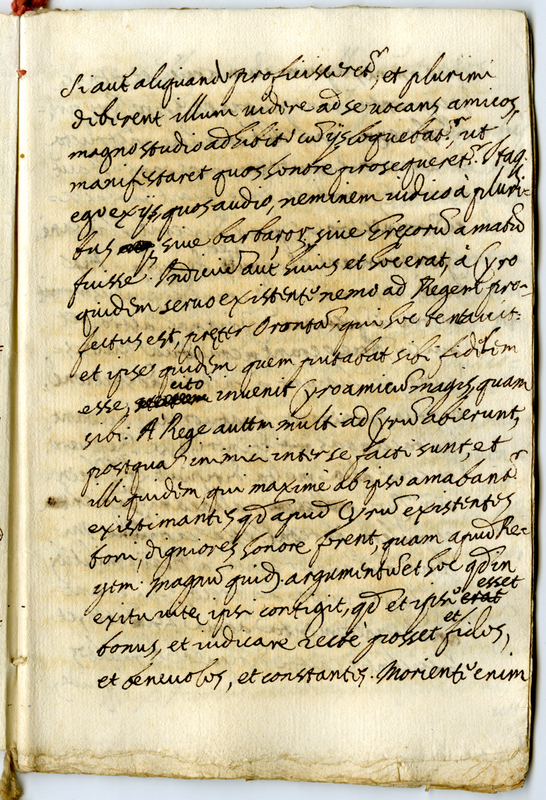 Si aut aliquando proficisceret.r, et plurimi
deberent illum uidere ad se uocans amicos,
magno studio adhibito cũ ijs loquebat.r, ut
manifestaret quos honore prosequeret.r. Itaq.
ego ex ijs, quos audio, neminem iudico à pluri-
bus siue barbarorũ, siue Grecorũ amatũ
fuisse. Indiciũ aut huius et hoc erat, à Cyro
quidem seruo existente nemo ad Regem pro-
fectus est, pręter Orontã, qui hoc tentauit:
et ipse quidem quem putabat sibi fidelem
esse, cito inuenit Cyro amicũ magis quam
sibi. A Rege autem multi ad Cyrũ abierunt,
postquã inimici inter se facti sunt, et
illi quidem qui maximè ab ipso amabant.r
existimantes qd apud Cyrũ existentes
boni, digniores honore forent, quam apud Re-
gem. Magnũ quidẽ argumentũ et hoc qd in
exitu uitę ipsi contigit, qd et ipse esset
bonus, et iudicare rectè posset et fidos,
et beneuolos, et constantes. Morientẽ enim